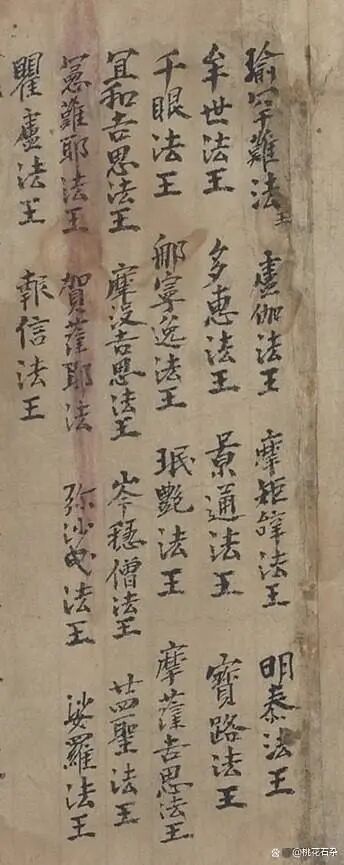 瑜罕難法王 盧伽法王 摩矩辝法王 明泰法王
牟世法王 多惠法王 景通法王 寶路法王
千眼法王 那寧逸法王 珉艷法王 摩薩吉思法王
宜和吉思法王 摩没吉思法王 岑穩僧法王 廿四聖法王
憲難耶法王 賀薩耶法 弥沙曳法王 娑羅法王
瞿盧法王 報信法王
@桃花石杂